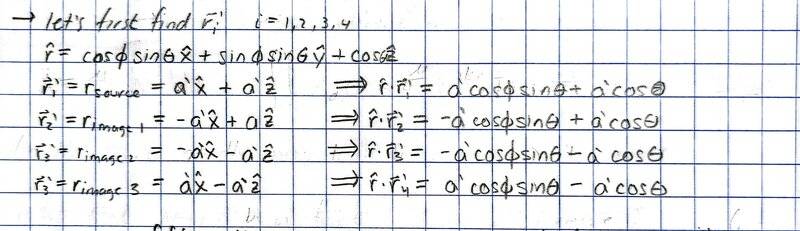 → let's first find r⃗ᵢ' i = 1,2,3,4
r̂ = cosϕsinθx̂ + sinϕsinθŷ + cosθẑ
r⃗₁' = r_source = a'x̂ + a'ẑ ⟹ r̂·r⃗₁' = a'cosϕsinθ + a'cosθ
r⃗₂' = r_image 1 = -a'x̂ + aẑ ⟹ r̂·r⃗₂' = -a'cosϕsinθ + a'cosθ
r⃗₃' = r_image 2 = -a'x̂ - a'ẑ ⟹ r̂·r⃗₃' = -a'cosϕsinθ - a'cosθ
r⃗₃' = r_image 3 = a'x̂ - a'ẑ ⟹ r̂·r⃗₄' = a'cosϕsinθ - a'cosθ